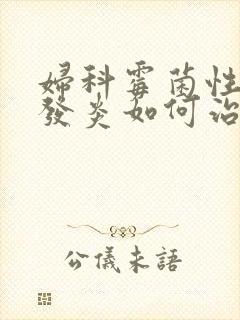 婦科霉菌性
發炎如何治
公儀未語